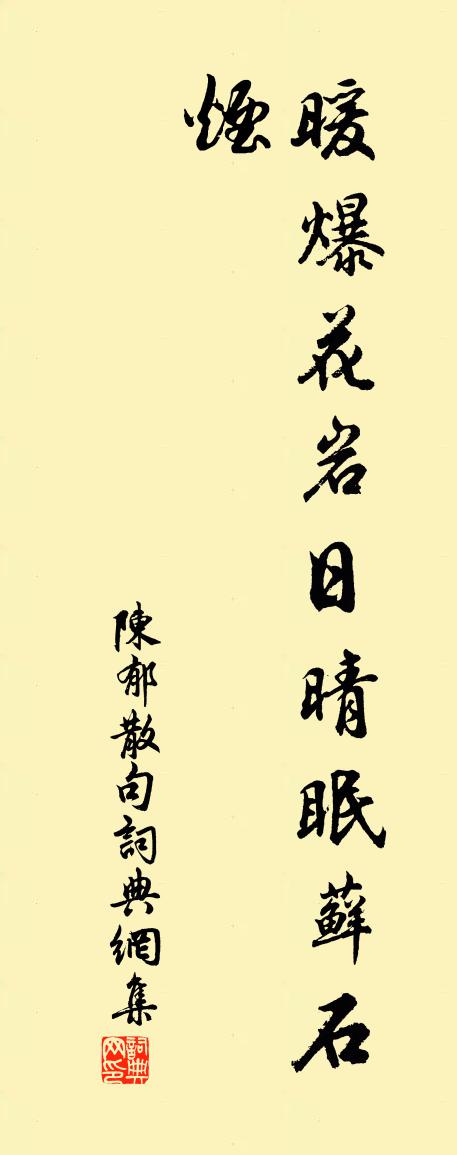 暖爆花岩日晴眠蘚石
煙
陳郁散句詞典網集
詞典网印